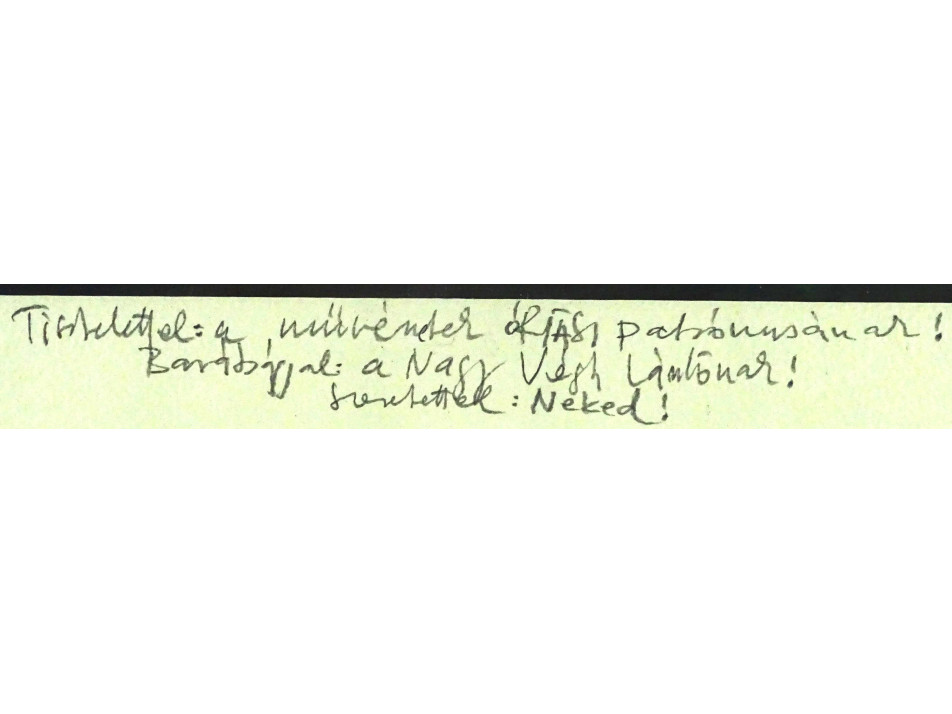 Tisztelettel: a művészetek ÓRIÁSI patrónusának!
Barátsággal: a Nagy Végh Lászlónak!
szeretettel: Neked!